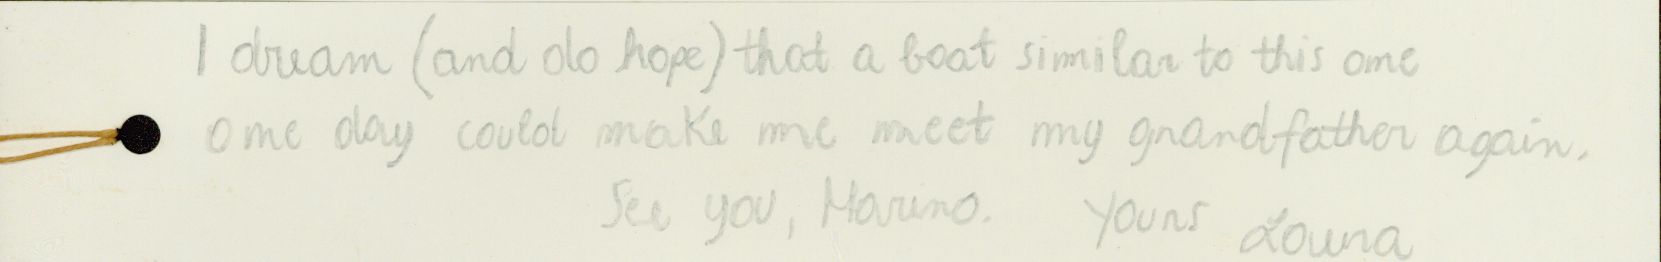 I dream (and do hope) that a boat similar to this one
one day could make me meet my grandfather again.
See you, Marino. Yours Laura